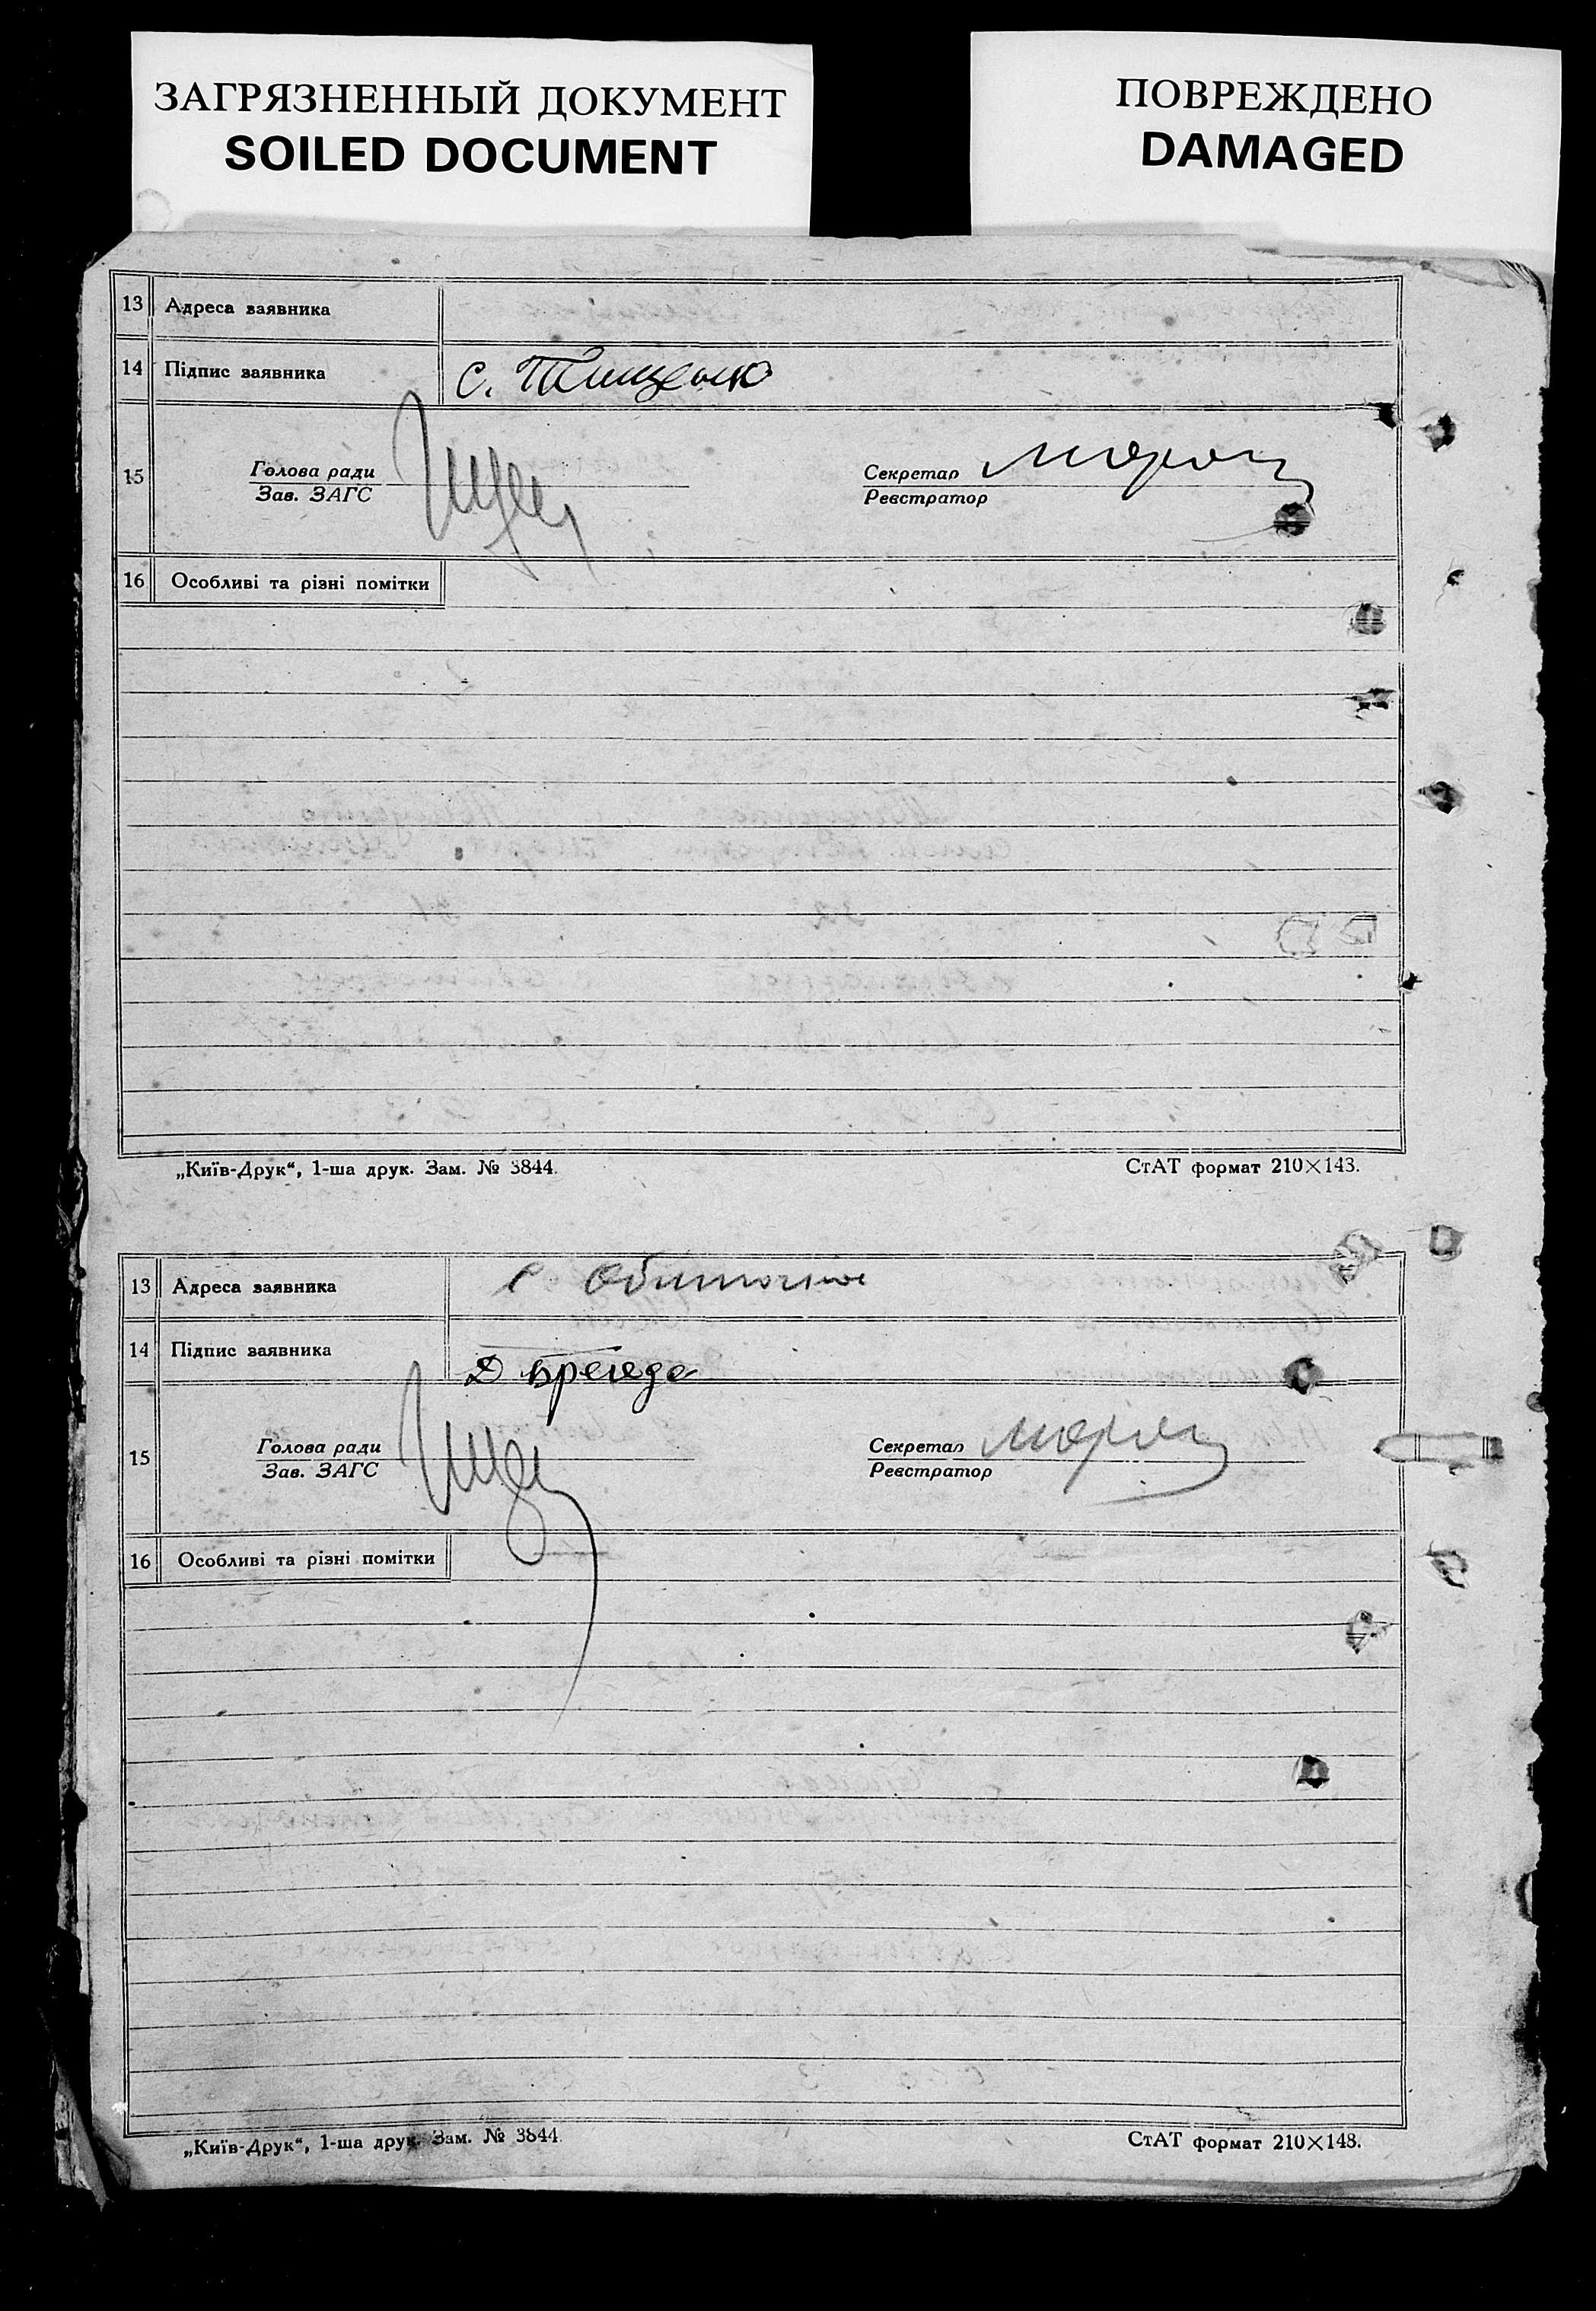 ЗАГРЯЗНЕННЫЙ ДОКУМЕНТ
SOILED DOCUMENT
ПОВРЕЖДЕНО
DAMAGED
13 Адреса заявника
14 Підпис заявника С. Тищенко
15 Голова ради
Зав. ЗАГС
Секретар Мороз
Реєстратор
16 Особливі та різні помітки
„Київ-Друк“, 1-ша друк. Зам. № 3844.
СтАТ формат 210×143.
13 Адреса заявника с
14 Підпис заявника
15 Голова ради
Зав. ЗАГС
Секретар Мороз
Реєстратор
16 Особливі та різні помітки
„Київ-Друк“, 1-ша друк. Зам. № 3844.
СтАТ формат 210×148.